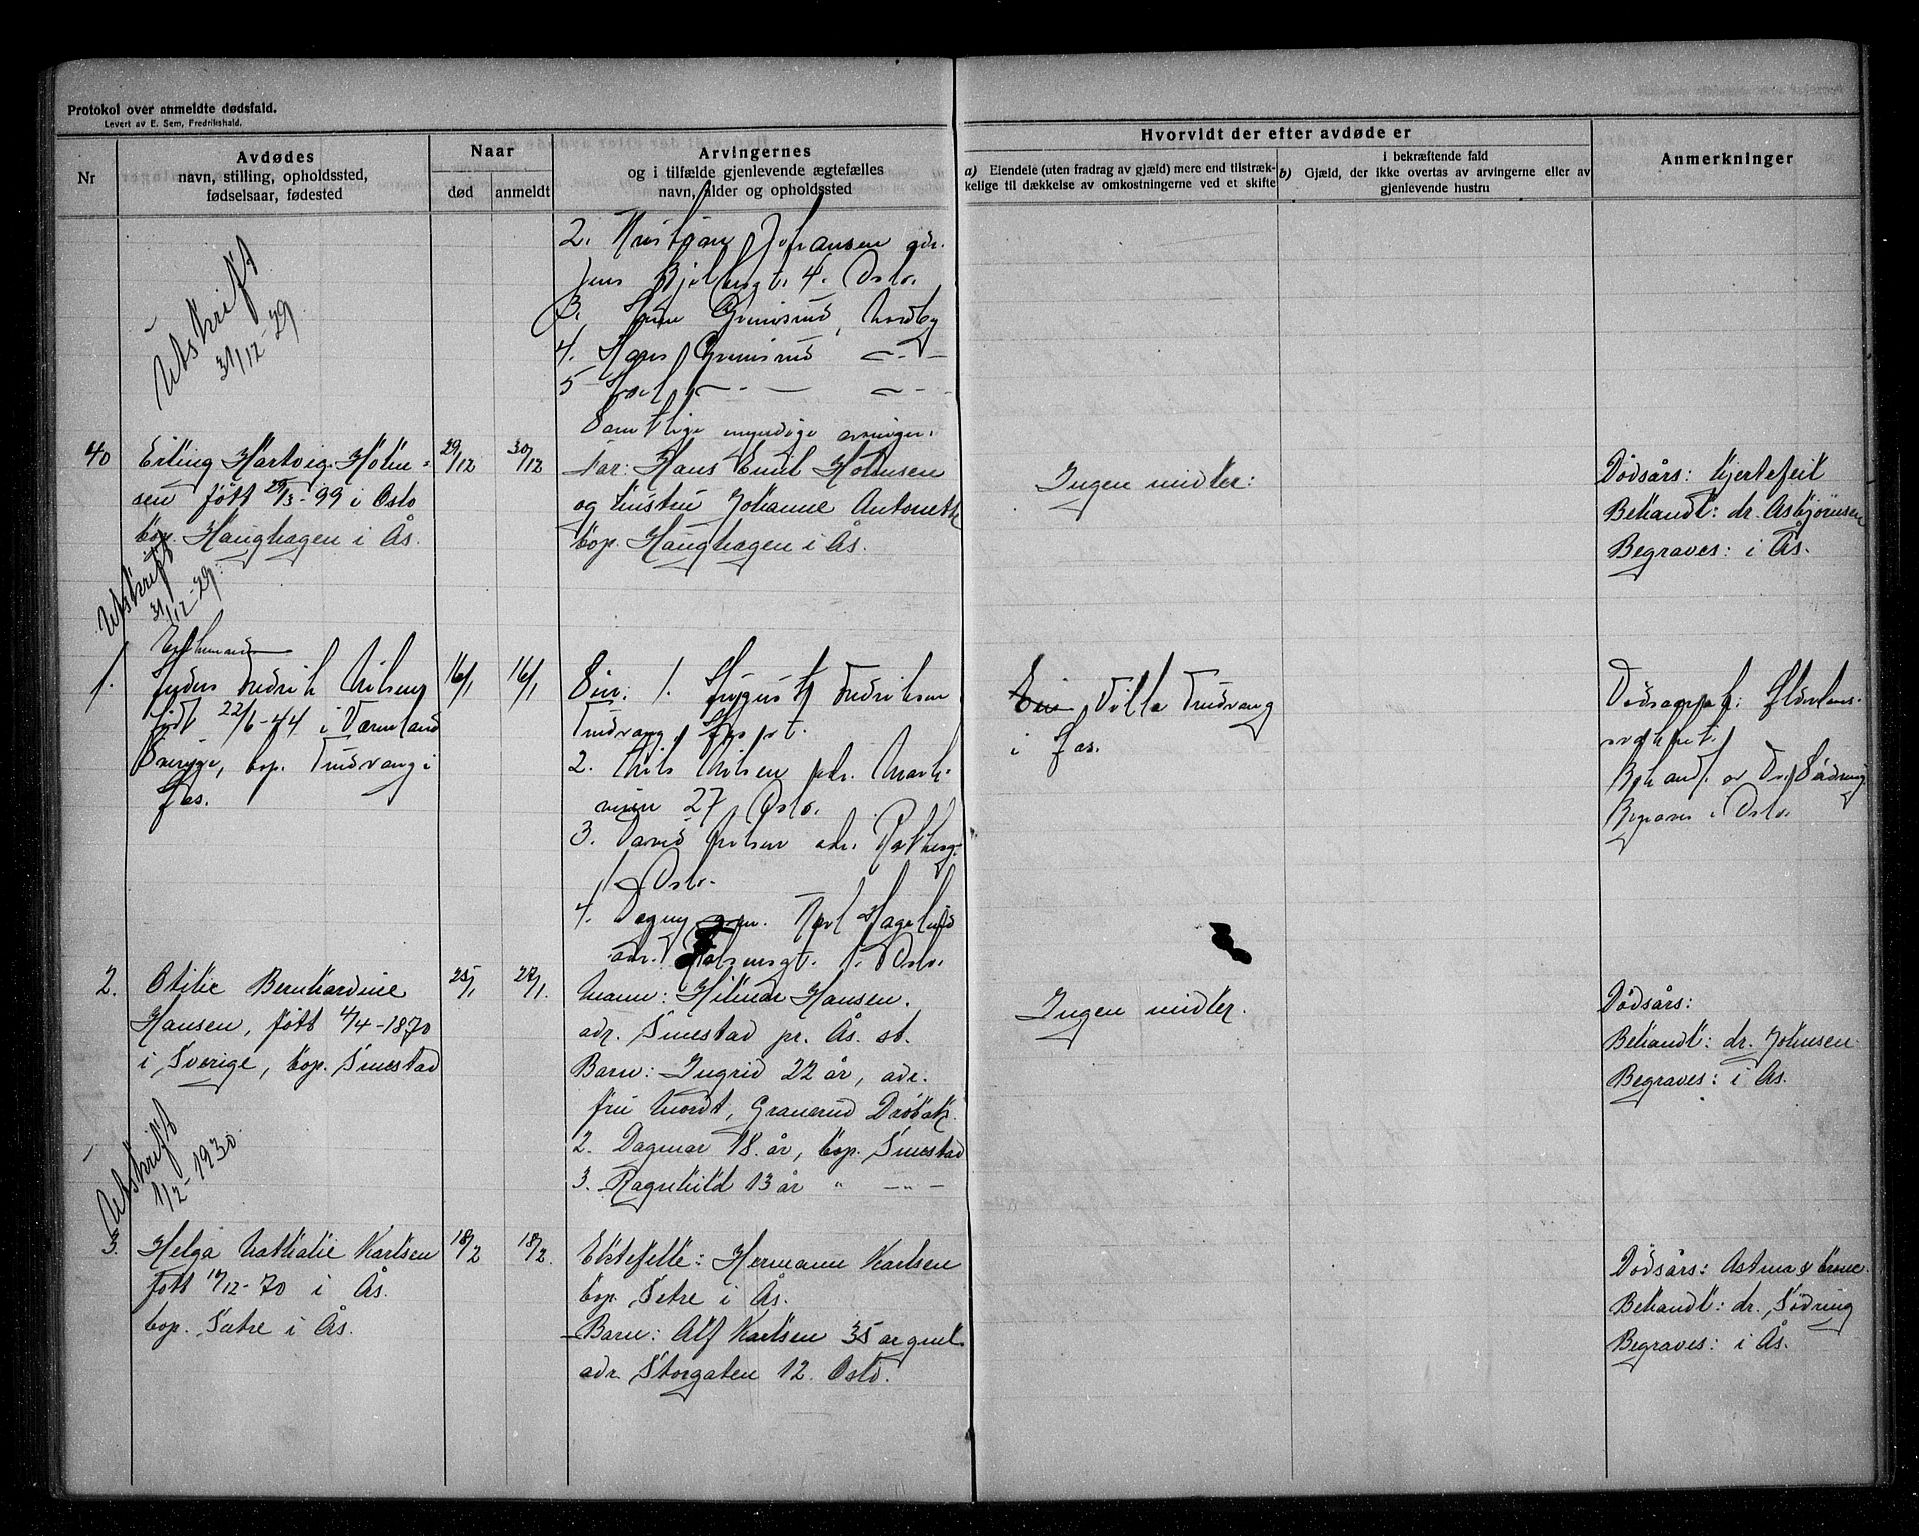 Protokol over anmeldte dødsfald.
Levert av E. Sem, Fredrikshald.
Nr
Avdødes
navn, stilling, opholdssted,
fødselsaar, fødested
Naar
død
anmeldt
Arvingernes
og i tilfælde gjenlevende ægtefælles
navn, alder og opholdssted
Hvorvidt der efter avdøde er
a) Eiendele (uten fradrag av gjæld) mere end tilstræk-
kelige til dækkelse av omkostningerne ved et skifte
i bekræftende fald
b) Gjæld, der ikke overtas av arvingerne eller av
gjenlevende hustru
Anmerkninger
Utskrift
31/12-29
2. Kristian Johansen adr.
Jens Bjelkesgt. 4. Oslo.
3. Grimsrud, Nordby
4. Hans Grimsrud
5
Samtlige myndige arvinger.
40
Erling Hartvig Holm-
sen født 25/3-99 i Oslo
bop. Haughagen i Ås.
29/12
30/12
Far: Hans Emil Holmsen
og hustru Johanne Antonette
bop. Haughagen i Ås.
Ingen midler:
Dødsårs: hjertefeil
Behandl: dr. Asbjørnsen
Begraves: i Ås.
Utskrift
31/12-29
1.
Enkemand
Anders Fredrik Nilsen
født 22/6-44 i Värmland
Sverige, bop. Trudvang i
Aas.
16/1
16/1
1. August Fredriksen
Trudvang, Aas
2. Nils Nilsen adr. Mark-
veien 27 Oslo.
3. David Nilsen adr.
Oslo.
4. Dagny Karl Hagelund
adr. Oslo.
Eier Villa Trudvang
i Aas.
Dødsaarsak: Alderdoms-
svakhet.
Behandl. av Dr. Södring
Begraves i Oslo.
2.
Otilie Bernhardine
Hansen, født 4/4-1870
i Sverige, bop. Smestad
25/1
27/1.
Mann: Hilmar Hansen.
adr. Smestad pr. Ås. st.
Barn: Ingrid 22 år, adr.
fru Mordt, Granerud Drøbak.
2. Dagmar 18 år, bop. Smestad
3. Ragnhild 13 år " -"-
Ingen midler.
Dødsårs:
Behandl: dr. Johnsen
Begraves: i Ås.
Utskrift
1/2-1930.
3.
Helga Nathalie Karlsen
født 19/12-70 i Ås.
bop. Sætre i Ås.
18/2
18/2.
Ektefelle: Hermann Karlsen
bop. Setre i Ås.
Barn: Alf Karlsen 35 år gml.
adr. Storgaten 12. Oslo.
Dødsårs: Astma
Behandl: dr. Södring
Begraves: i Ås.